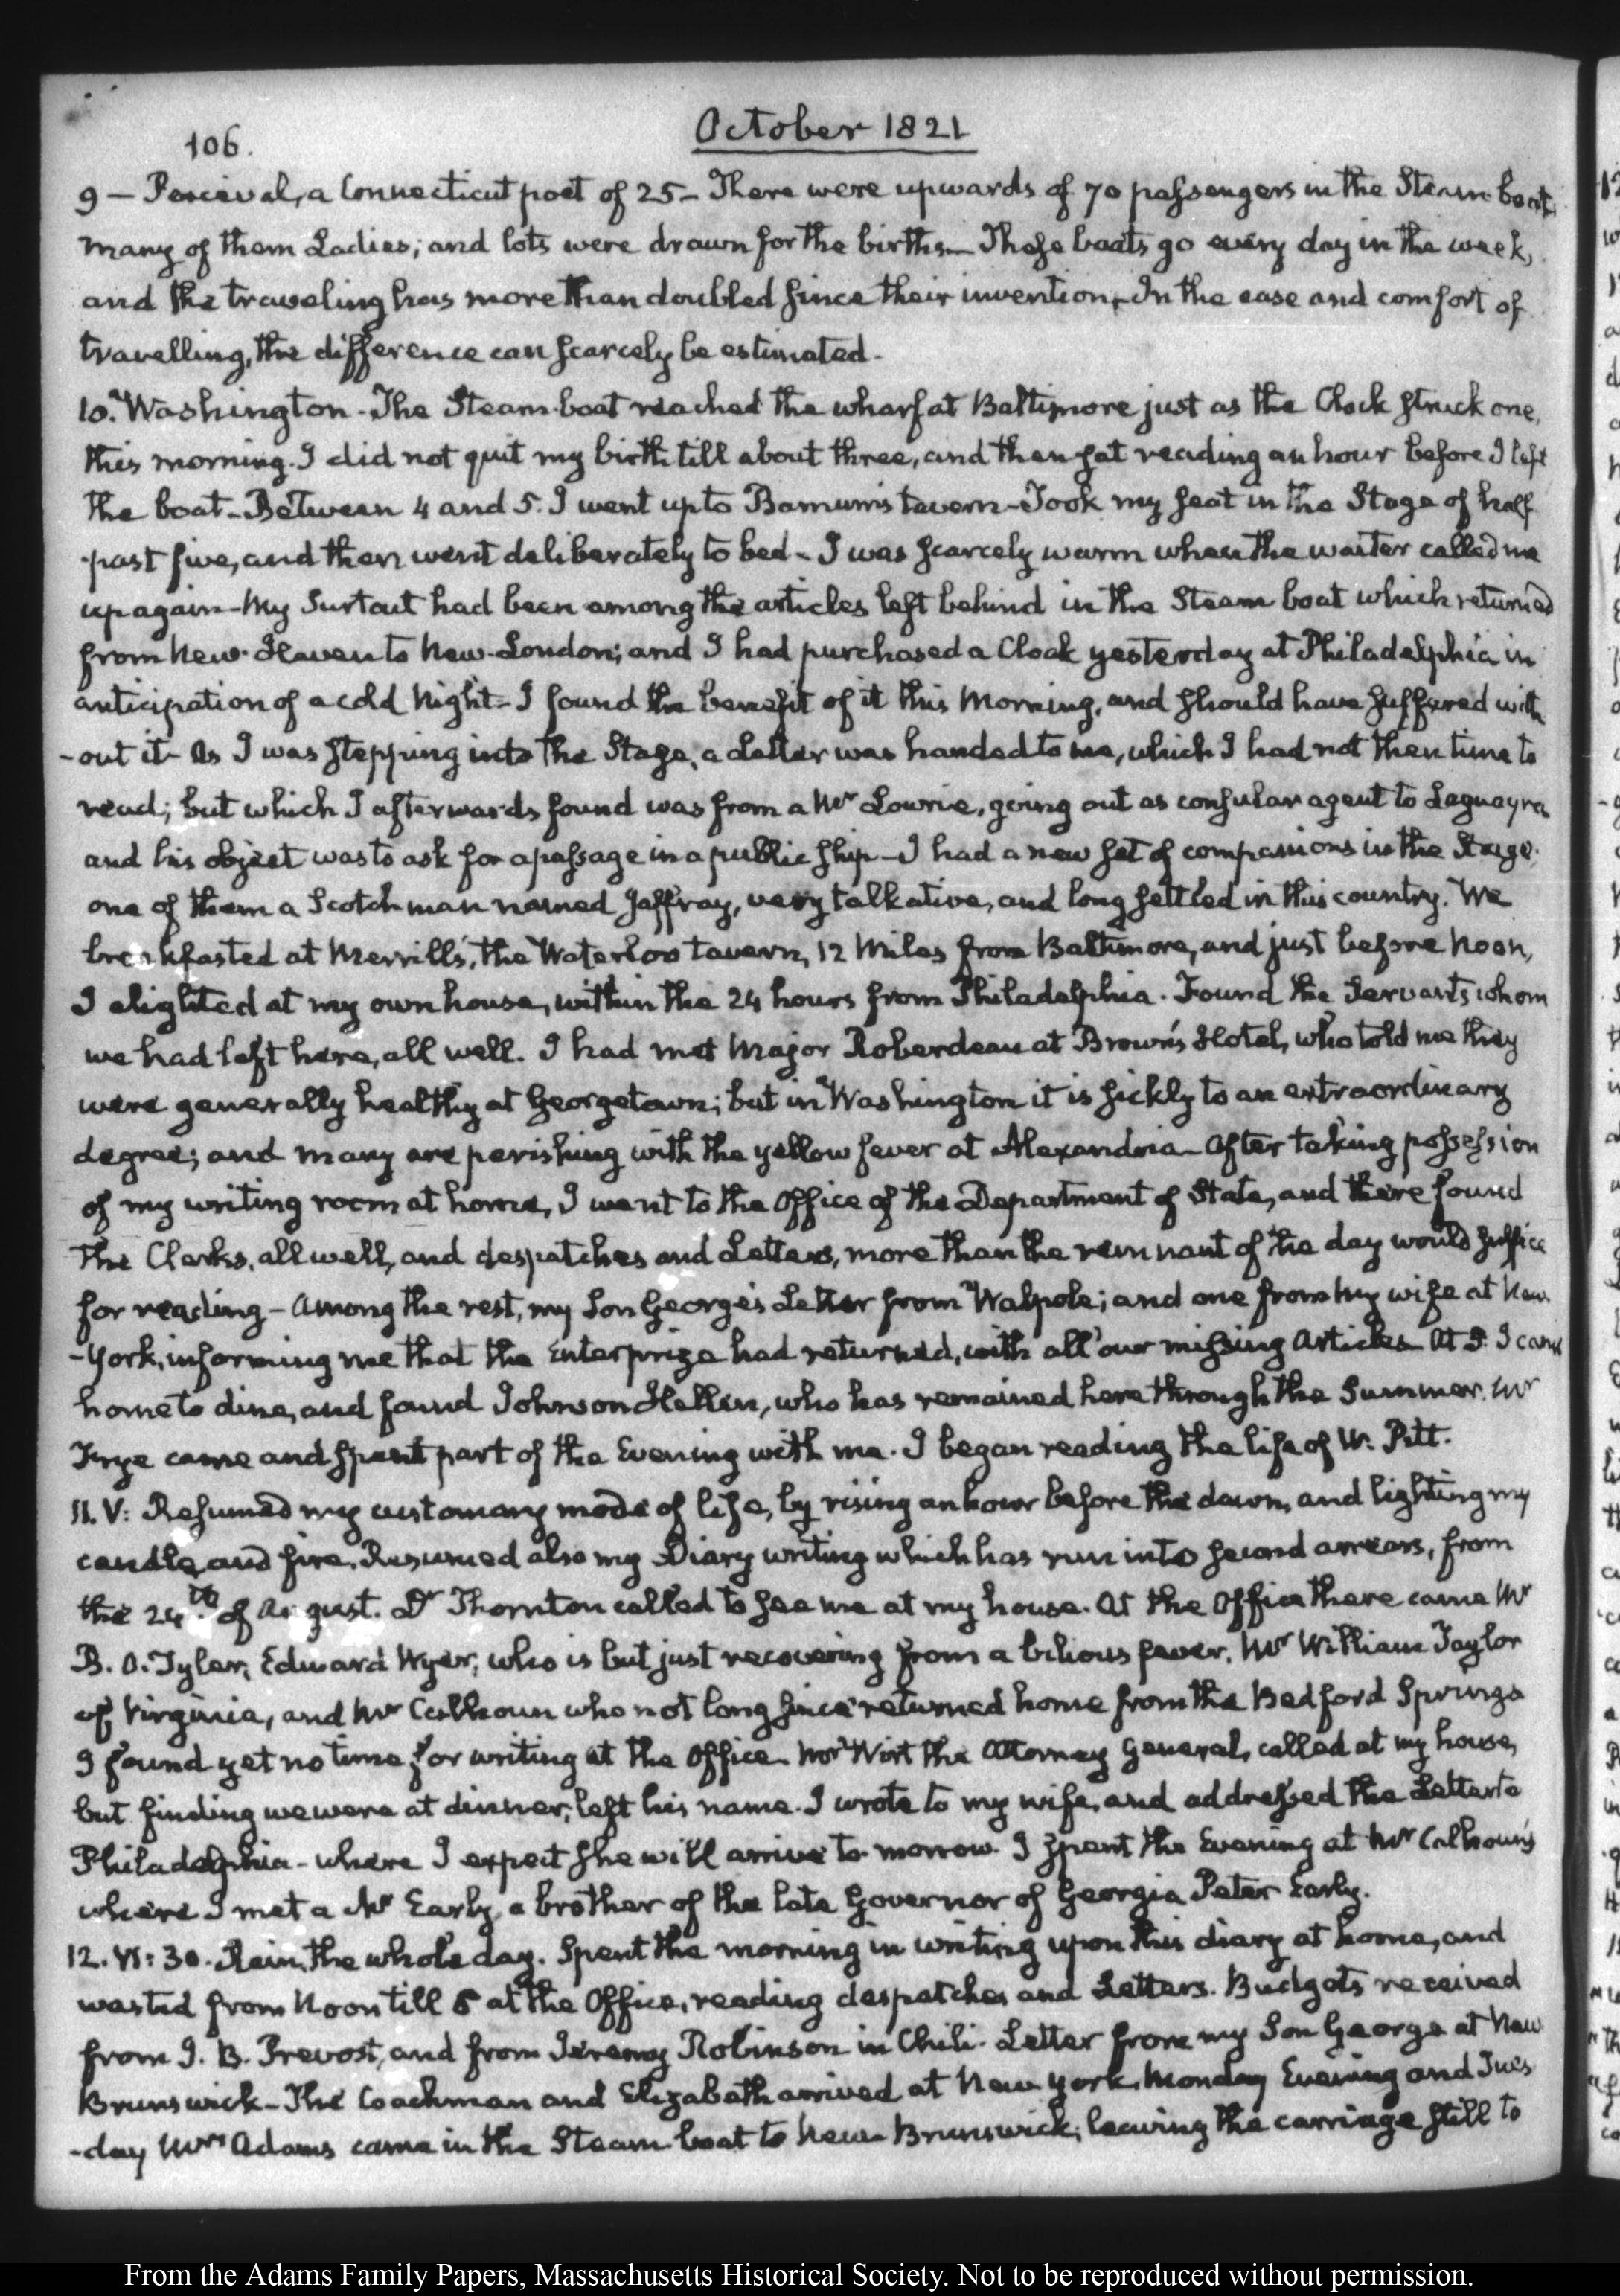 106.
October 1821
9 – Percival, a Connecticut poet of 25 – There were upwards of 70 passengers in the Steam-boat,
many of them Ladies; and lots were drawn for the births – These boats go every day in the week,
and the traveling has more than doubled since their invention – In the ease and comfort of
travelling, the difference can scarcely be estimated.
10. Washington – The Steam-boat reached the wharf at Baltimore just as the Clock struck one,
this morning. I did not quit my birth till about three, and then sat reading an hour before I left
the boat – Between 4 and 5. I went up to Barnum's tavern – Took my seat in the Stage of half
past five, and then went deliberately to bed – I was scarcely warm when the waiter called me
up again – My Surtout had been among the articles left behind in the Steam boat which returned
from New-Haven to New-London; and I had purchased a Cloak yesterday at Philadelphia in
anticipation of a cold Night – I found the benefit of it this Morning, and should have suffered with
-out it – As I was stepping into the Stage, a Letter was handed to me, which I had not then time to
read; but which I afterwards found was from a Mr Lowrie, going out as consular agent to Laguayra
and his object was to ask for a passage in a public ship – I had a new set of companions in the Stage.
one of them a Scotchman named Jaffray, very talkative, and long settled in this country. We
breakfasted at Merrill's, the Waterloo tavern, 12 Miles from Baltimore, and just before Noon,
I alighted at my own house, within the 24 hours from Philadelphia. Found the Servants whom
we had left here, all well. I had met Major Roberdeau at Brown's Hotel, who told me they
were generally healthy at Georgetown; but in Washington it is sickly to an extraordinary
degree; and many are perishing with the yellow fever at Alexandria – After taking possession
of my writing room at home, I went to the Office of the Department of State, and there found
the Clerks, all well, and despatches and Letters, more than the remnant of the day would suffice
for reading – Among the rest, my Son George's Letter from Walpole; and one from my wife at New-
-York, informing me that the Enterprize had returned, with all our missing Articles – At 5. I came
home to dine, and found Johnson Hellen, who has remained here through the Summer. Mr
Frye came and spent part of the Evening with me. I began reading the life of W. Pitt.
11. V: Resumed my customary mode of life, by rising an hour before the dawn, and lighting my
candle and fire. Resumed also my Diary writing which has run into second arrears, from
the 24th of August. Dr Thornton called to see me at my house. At the Office there came Mr
B. O. Tyler, Edward Wyer, who is but just recovering from a bilious fever, Mr William Taylor
of Virginia, and Mr Calhoun who not long since returned home from the Bedford Springs
I found yet no time for writing at the Office. Mr Wirt the Attorney General, called at my house,
but finding we were at dinner, left his name. I wrote to my wife, and addressed the Letter to
Philadelphia – where I expect she will arrive to-morrow. I spent the Evening at Mr Calhoun's
where I met a Mr Early, a brother of the late Governor of Georgia Peter Early.
12. VI: 30. Rain, the whole day. Spent the morning in writing upon this diary at home, and
wasted from Noon till 5 at the Office, reading despatches and Letters. Budgets received
from J. B. Prevost, and from Jeremy Robinson in Chili. Letter from my Son George at New
Brunswick – The Coachman and Elizabeth arrived at New-York, Monday Evening and Tues
-day Mrs Adams came in the Steam-boat to New-Brunswick, leaving the carriage still to
From the Adams Family Papers, Massachusetts Historical Society. Not to be reproduced without permission.